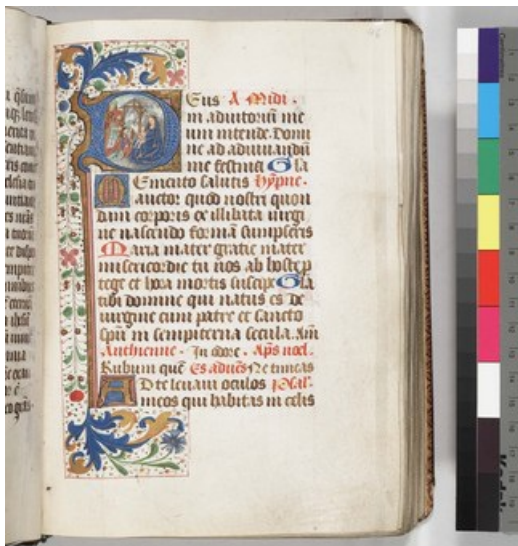 Eus A Midi.
in adiutoriũ me
um intende. Domi
ne ad adiuuandũ
me festina Gla
Emento salutis hỹpne.
auctor quod nostri quon
dam corporis ex illibata uirgi
ne nascendo formã sumpseris
Maria mater gratie mater
misericordie tu nos ab hoste p
tege et hora mortis suscipe Gla
tibi domine qui natus es de
uirgine cum patre et sancto
spũ in sempiterna secula. Am
Anthienne. In odore. Aps noel.
Rubum quẽ Es aduẽs Ne timeas
AD te leuaui oculos Psal
meos qui habitas in celis